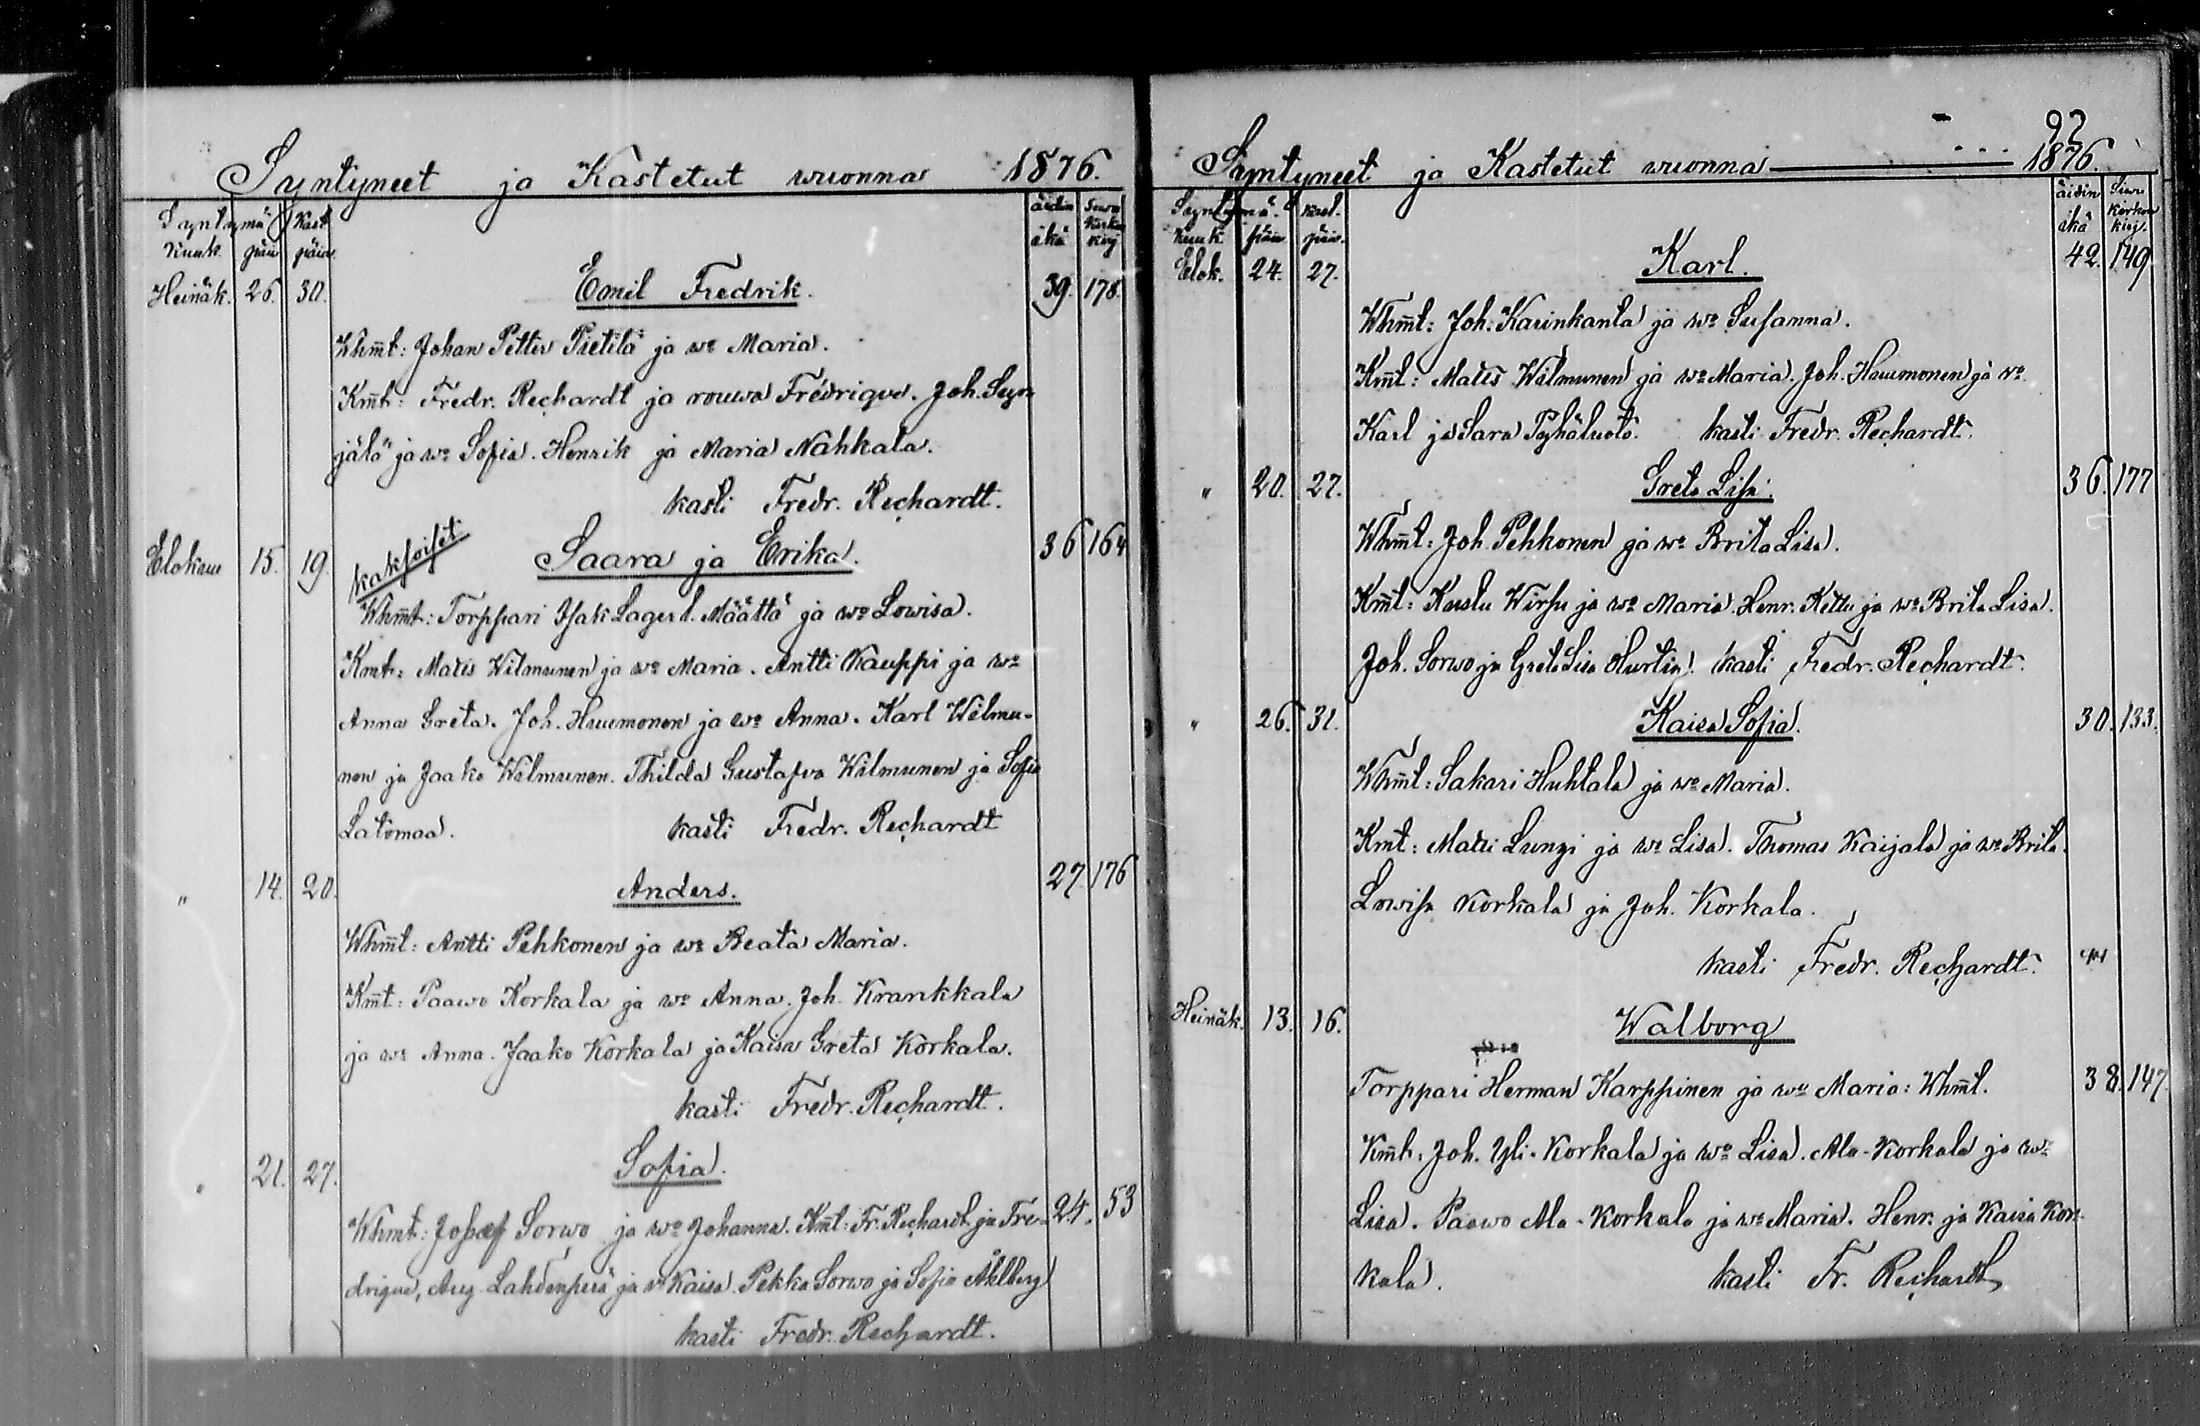 Syntyneet ja Kastetut wuonna 1876.
Syntymä Kast äidin Seura
Kuuk. päiw päiw ikä kirkon kirj
Heinäk. 26. 30. Emil Fredrik. 39. 178.
Whm̅t: Johan Petter Pietilä ja wo Maria.
Km̅t: Fredr. Rechardt ja rouwa Fredrique. Joh. Syr-
jälä ja wo Sofia. Henrik ja Maria Nahkala.
kasti Fredr. Rechardt.
Elokuu 15. 19. kaksoiset Saara ja Erika. 36 164
Whm̅t: Torppari Isak Lager l. Määttä ja wo Lowisa.
Kmt: Matts Wilmunen ja wo Maria. Antti Kauppi ja wo
Anna Greta. Joh. Huumonen ja wo Anna. Karl Wilmu-
nen ja Jaako Wilmunen. Thilda Gustafva Wilmunen ja Sofia
Latomaa. kasti Fredr. Rechardt
" 14. 20. Anders. 27 176
Whm̅t: Antti Pehkonen ja wo Beata Maria.
Km̅t: Paawo Korkala ja wo Anna. Joh. Krankkala
ja wo Anna. Jaako Korkala ja Kaisa Greta Korkala.
kasti Fredr. Rechardt.
" 21. 27. Sofia.
Whmt: Josef Sorwo ja wo Johanna. Km̅t: Fr. Rechardt ja Fre- 24. 53
drique, Aug. Lahdenperä ja wo Kaisa. Pekka Sorwo ja Sofia Åhlberg
kasti Fredr. Rechardt.
92
Syntyneet ja Kastetut wuonna 1876.
Syntymä. Kast. äidin Seura
Kuuk. päiw päiw. ikä Kirkon kirj.
Elok. 24. 27. Karl. 42. 149
Whm̅t: Joh. Karinkanta ja wo Susanna.
Km̅t: Matts Wilmunen ja wo Maria. Joh. Huumonen ja wo
Karl ja Sara Pyhäluoto. kasti Fredr. Rechardt.
" 20. 27. Greta Lisa. 36. 177
Whm̅t: Joh. Pehkonen ja wo Brita Lisa.
Km̅t: Kustu Wirsu ja wo Maria. Henr. Kettu ja wo Brita Lisa.
Joh. Sorwo ja Greta Lisa Hurtig. kasti Fredr. Rechardt.
" 26. 31. Kaisa Sofia. 30. 133.
Whm̅t: Sakari Huhtala ja wo Maria.
Kmt: Matti Lungi ja wo Lisa. Thomas Kaijala ja wo Brita.
Lowisa Korkala ja Joh. Korkala.
kasti Fredr. Rechardt.
Heinäk. 13. 16. Walborg
Torppari Herman Karppinen ja wo Maria: Whm̅t. 38. 147
Km̅t: Joh. Yli-Korkala ja wo Lisa. Ala-Korkala ja wo
Lisa. Paawo Ala-Korkala ja wo Maria. Henr. ja Kaisa Kor-
kala. kasti Fr. Rechardt